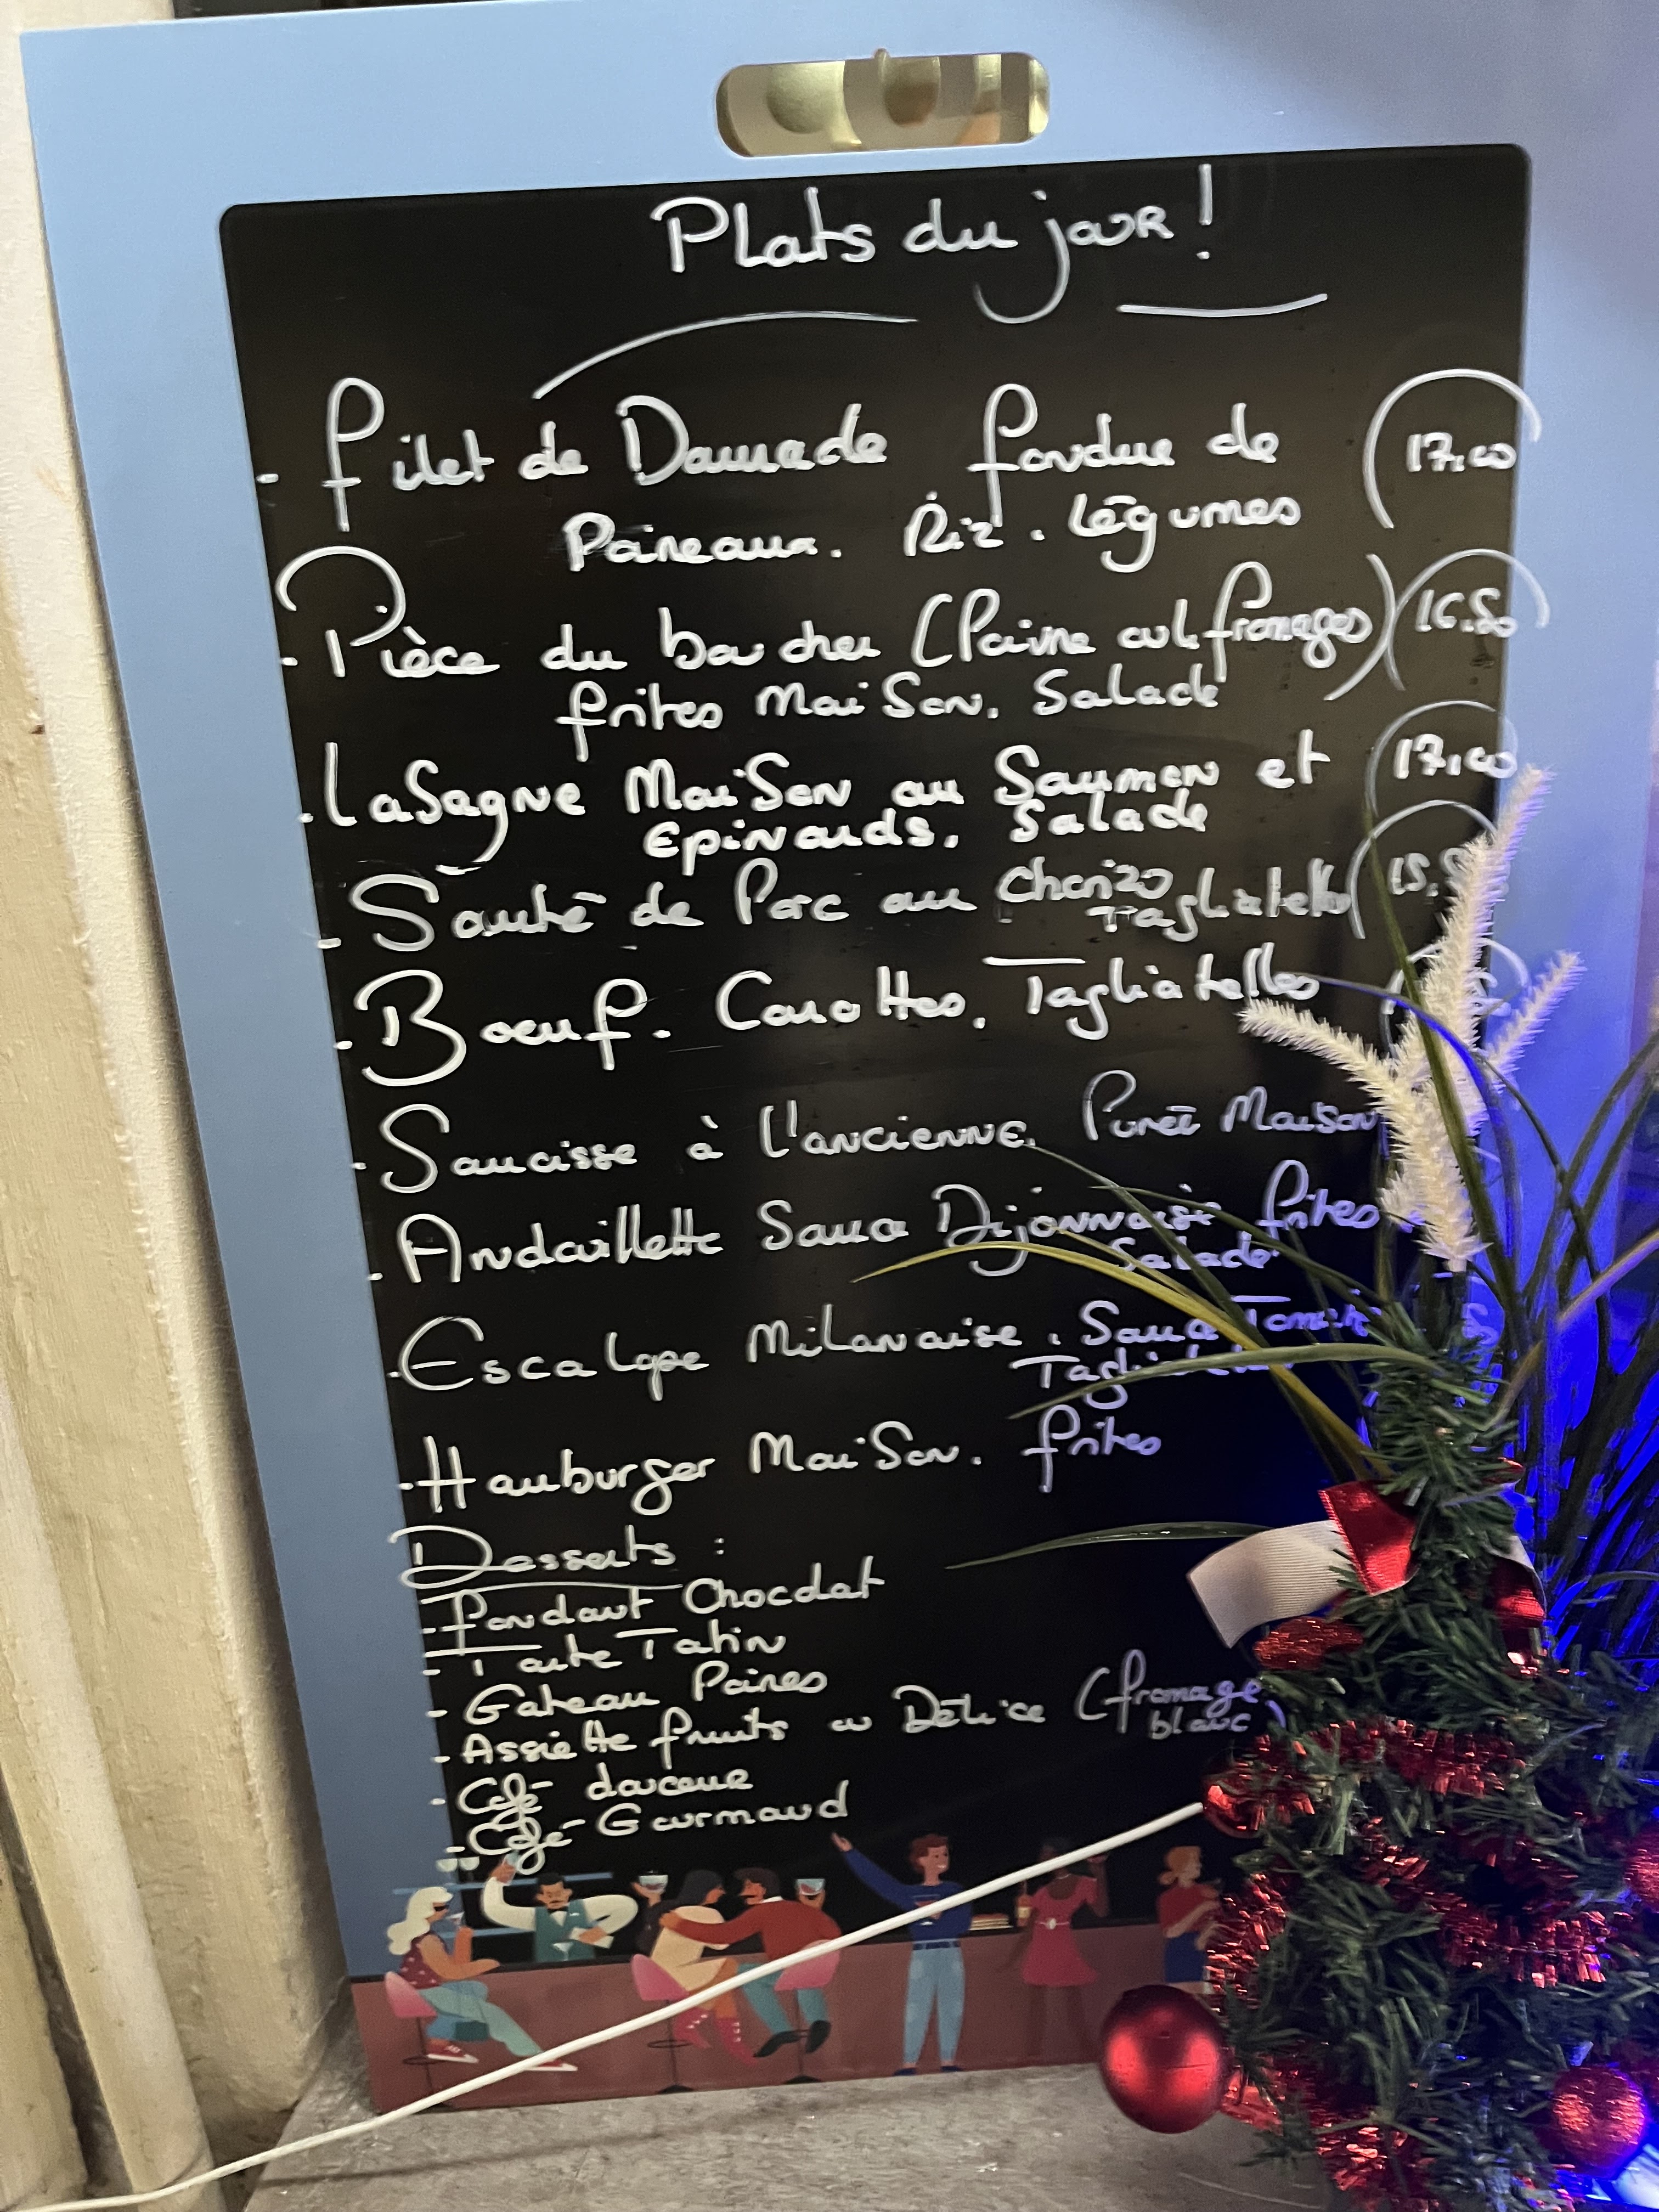 Plats du jour !
- Filet de Daurade fondue de
Poireaux. Riz. Légumes
17,00
- Pièce du boucher (Poivre ou fromages)
16.50
frites Maison. Salade
- Lasagne Maison au Saumon et
17,00
Epinards. Salade
- Sauté de Porc au Chorizo
Tagliatelles
- Boeuf. Carottes. Tagliatelles
- Saucisse à l'ancienne. Purée Maison
- Andouillette Sauce Dijonnaise frites
Salade
- Escalope Milanaise. Sauce Tomate
Tagliatelles
- Hamburger Maison. frites
Desserts :
- Fondant Chocolat
- Tarte Tatin
- Gateau Poires
- Assiette fruits ou Délice (fromage
blanc)
- Café douceur
- Café Gourmand